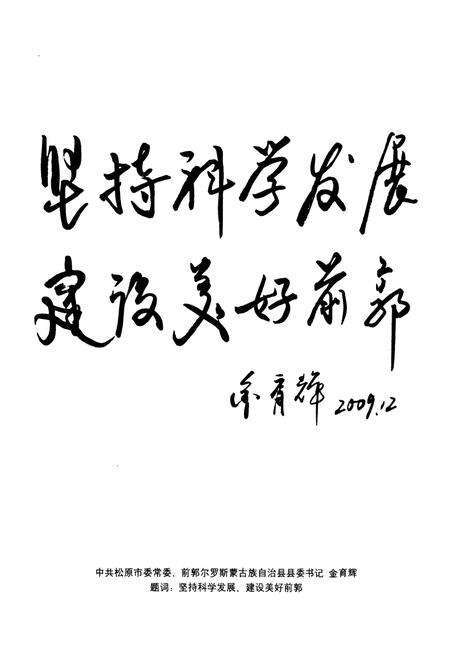 坚持科学发展
建设美好前郭
金育辉 2009.12
中共松原市委常委、前郭尔罗斯蒙古族自治县县委书记 金育辉
题词：坚持科学发展、建设美好前郭